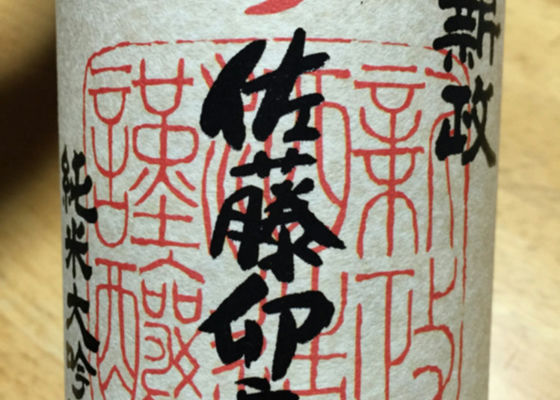 新政
佐藤卯
純米大吟
謹醸